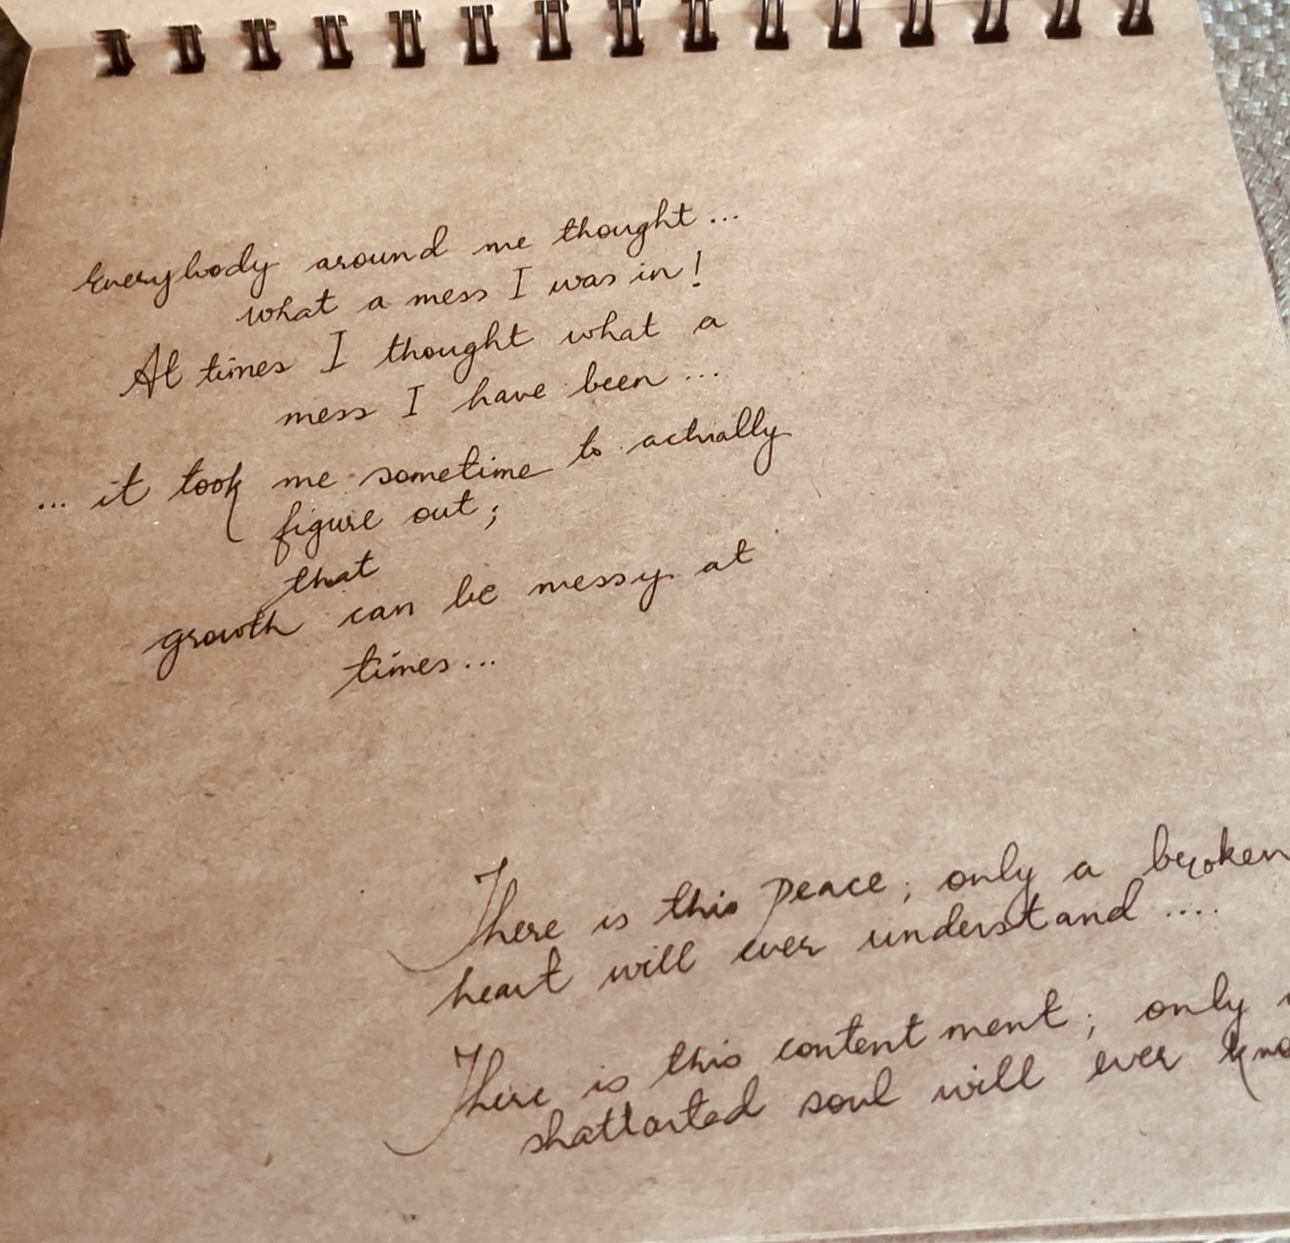 Everybody around me thought...
what a mess I was in!
At times I thought what a
mess I have been ...
... it took me sometime to actually
figure out;
that
growth can be messy at
times...
There is this peace; only a broken
heart will ever understand ....
There is this contentment; only
shattarted soul will ever